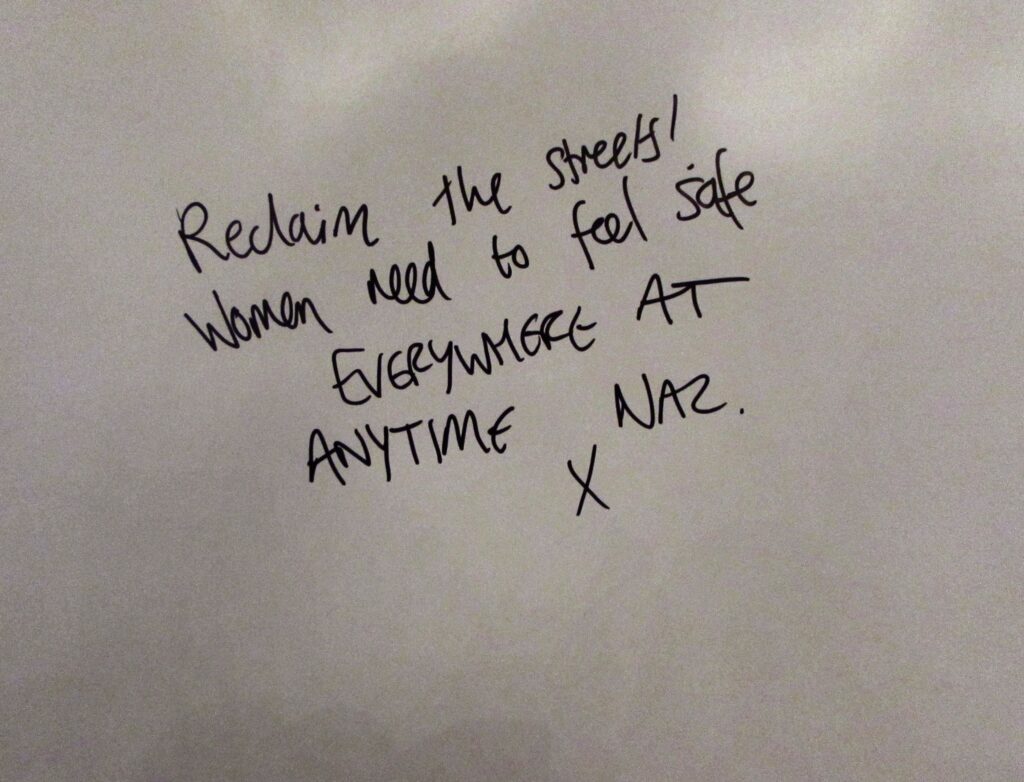 Reclaim the streets!
Women need to feel safe
EVERYWHERE AT
ANYTIME NAZ.
X